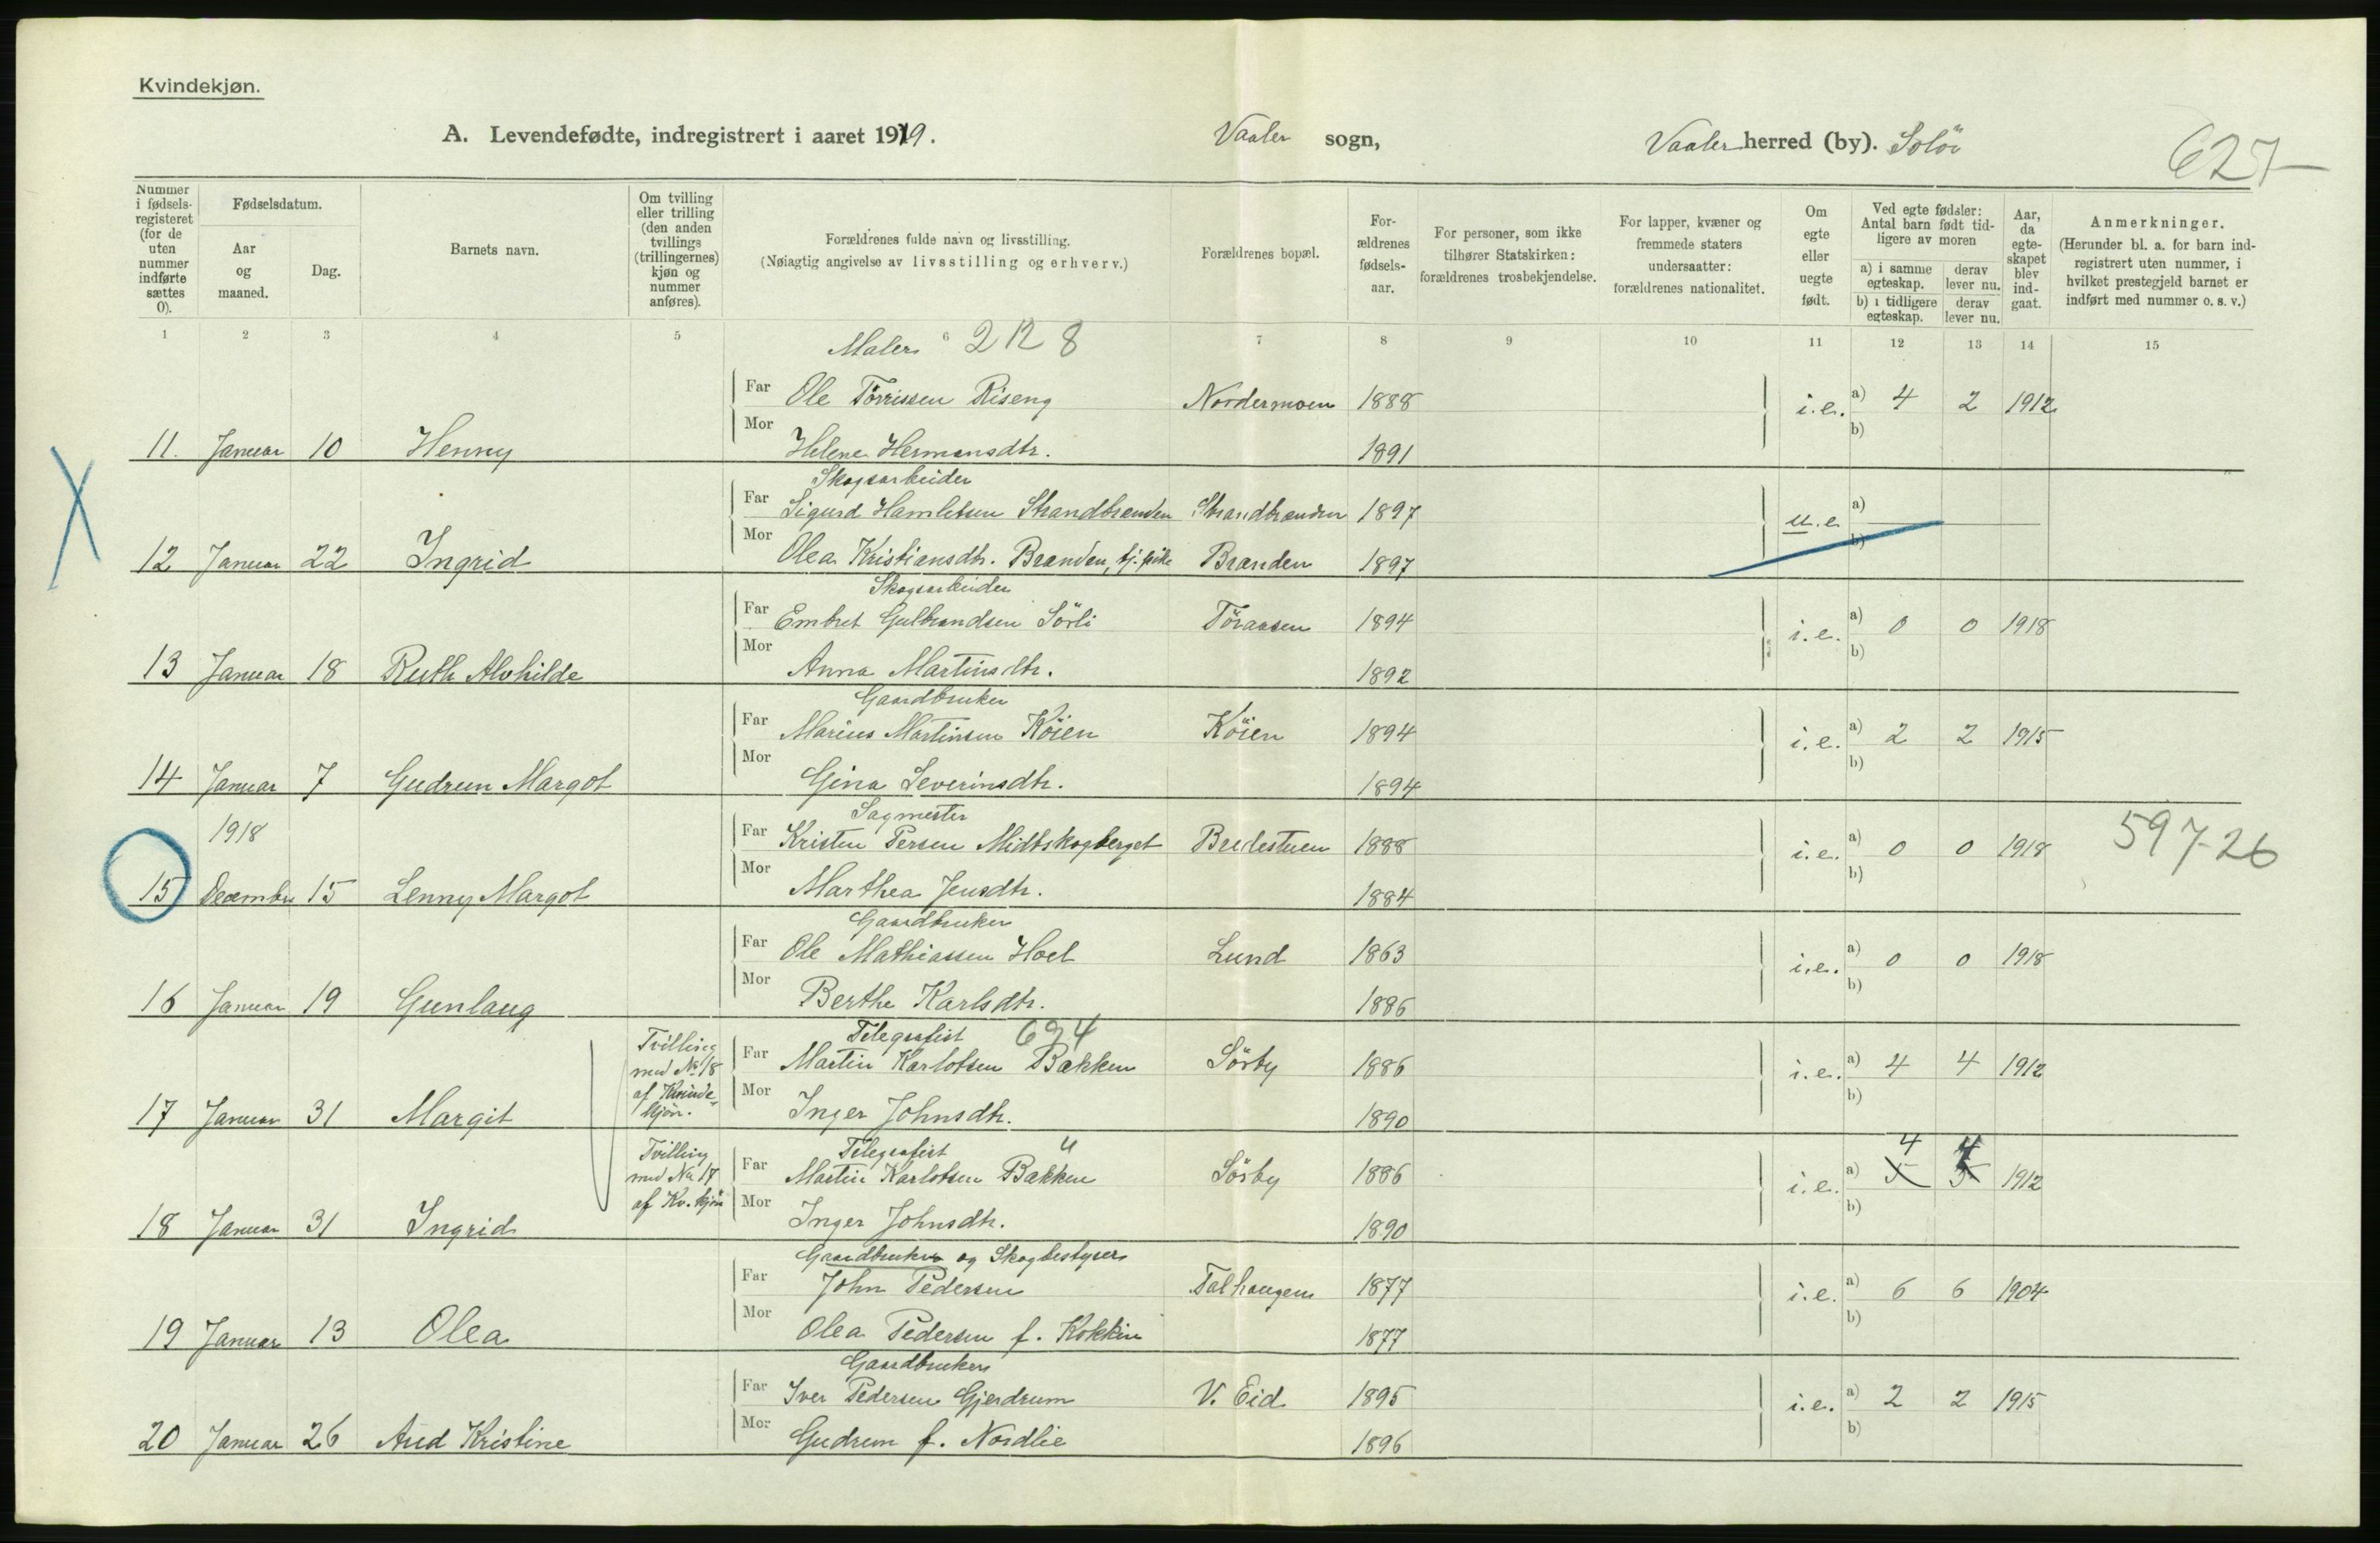 Kvindekjøn.
A. Levendefødte, indregistrert i aaret 1919. Vaaler sogn, Vaaler herred (by). Solör
627
Nummer i fødsels-registeret (for de uten nummer indførte sættes 0).
Fødselsdatum.
Aar og maaned.
Dag.
Barnets navn.
Om tvilling eller trilling (den anden tvillings (trillingernes) kjøn og nummer anføres).
Forældrenes fulde navn og livsstilling.
(Nøiagtig angivelse av livsstilling og erhverv.)
Forældrenes bopæl.
For-ældrenes fødsels-aar.
For personer, som ikke tilhører Statskirken: forældrenes trosbekjendelse.
For lapper, kvæner og fremmede staters undersaatter: forældrenes nationalitet.
Om egte eller uegte født.
Ved egte fødsler: Antal barn født tid-ligere av moren
a) i samme egteskap.
derav lever nu.
b) i tidligere egteskap.
derav lever nu.
Aar, da egte-skapet blev ind-gaat.
Anmerkninger.
(Herunder bl. a. for barn ind-registrert uten nummer, i hvilket prestegjeld barnet er indført med nummer o. s. v.)
1 2 3 4 5 6 7 8 9 10 11 12 13 14 15
Maler 2128
Far Ole Törrissen Riseng Nordermoen 1888 i.e. a) 4 2 1912
Mor b)
11. Januar 10 Henny Helene Hermansdtr. 1891
Skogsarbeider
Far Sigurd Hamletsen Strandbranden Strandbranden 1897 u.e. a)
Mor b)
12 Januar 22 Ingrid Olea Kristiansdtr. Branden, tj. pike Branden 1897
Skogsarbeider
Far Embret Gulbrandsen Sörli Töraasen 1894 i.e. a) 0 0 1918
Mor b)
13 Januar 18 Ruth Alvhilde Anna Martinsdtr. 1892
Gaardbruker
Far Marius Martinsen Köien Köien 1894 i.e. a) 2 2 1915
Mor b)
14 Januar 7 Gudrun Margot Gina Severinsdtr. 1894
Sagmester
1918 Far Kristen Persen Midtskogberget Bredestuen 1888 i.e. a) 0 0 1918 597-26
Mor b)
15 December 15 Lenny Margot Marthea Jensdtr. 1884
Gaardbruker
Far Ole Mathiassen Hoel Lund 1863 i.e. a) 0 0 1918
Mor b)
16 Januar 19 Gunlaug Berthe Karlsdtr. 1886
Telegrafist 694
Tvilling med No 18 af Kvinde-kjön.
Far Martin Karlotsen Bakken Sörby 1886 i.e. a) 4 4 1912
Mor b)
17 Januar 31 Margit Inger Johnsdtr. 1890
Telegrafist "
Tvilling med No 17 af Kv. kjön
Far Martin Karlotsen Bakken Sörby 1886 i.e. a) 5 4 5 4 1912
Mor b)
18 Januar 31 Ingrid Inger Johnsdtr. 1890
Gaardbruker og Skogbestyrer
Far John Pedersen Talhaugen 1877 i.e. a) 6 6 1904
Mor b)
19 Januar 13 Olea Olea Pedersen f. Kokkin 1877
Gaardbruker
Far Iver Pedersen Gjerdrum V. Eid 1895 i.e. a) 2 2 1915
Mor b)
20 Januar 26 Aud Kristine Gudrun f. Nordlie 1896